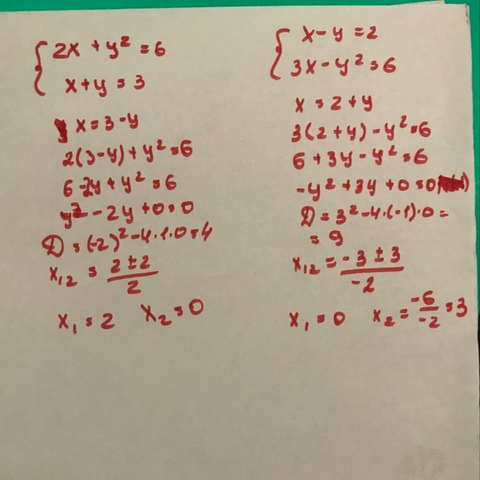 2x + y² = 6
x + y = 3
x = 3 - y
2(3-y) + y² = 6
6 - 2y + y² = 6
y² - 2y + 0 = 0
D = (-2)² - 4·1·0 = 4
x₁,₂ = (2 ± 2)/2
x₁ = 2 x₂ = 0
x - y = 2
3x - y² = 6
x = 2 + y
3(2+y) - y² = 6
6 + 3y - y² = 6
-y² + 3y + 0 = 0
D = 3² - 4·(-1)·0 =
= 9
x₁₂ = (-3 ± 3)/-2
x₁ = 0 x₂ = -6/-2 = 3